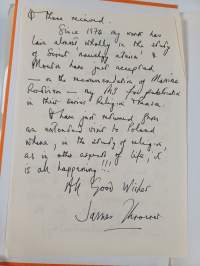 & those received.
Since 1974 my work has
been almost wholly in the study
of Soviet 'scientific atheism' &
Mouton have just accepted
– on the recommendation of Maxime
Rodinson – my MS for publication
in their series Religion & Reason.
I have just returned from
an extended visit to Poland
where, in the study of religion,
as in other aspects of life, it
is all happening!!!
All Good Wishes
James Thrower